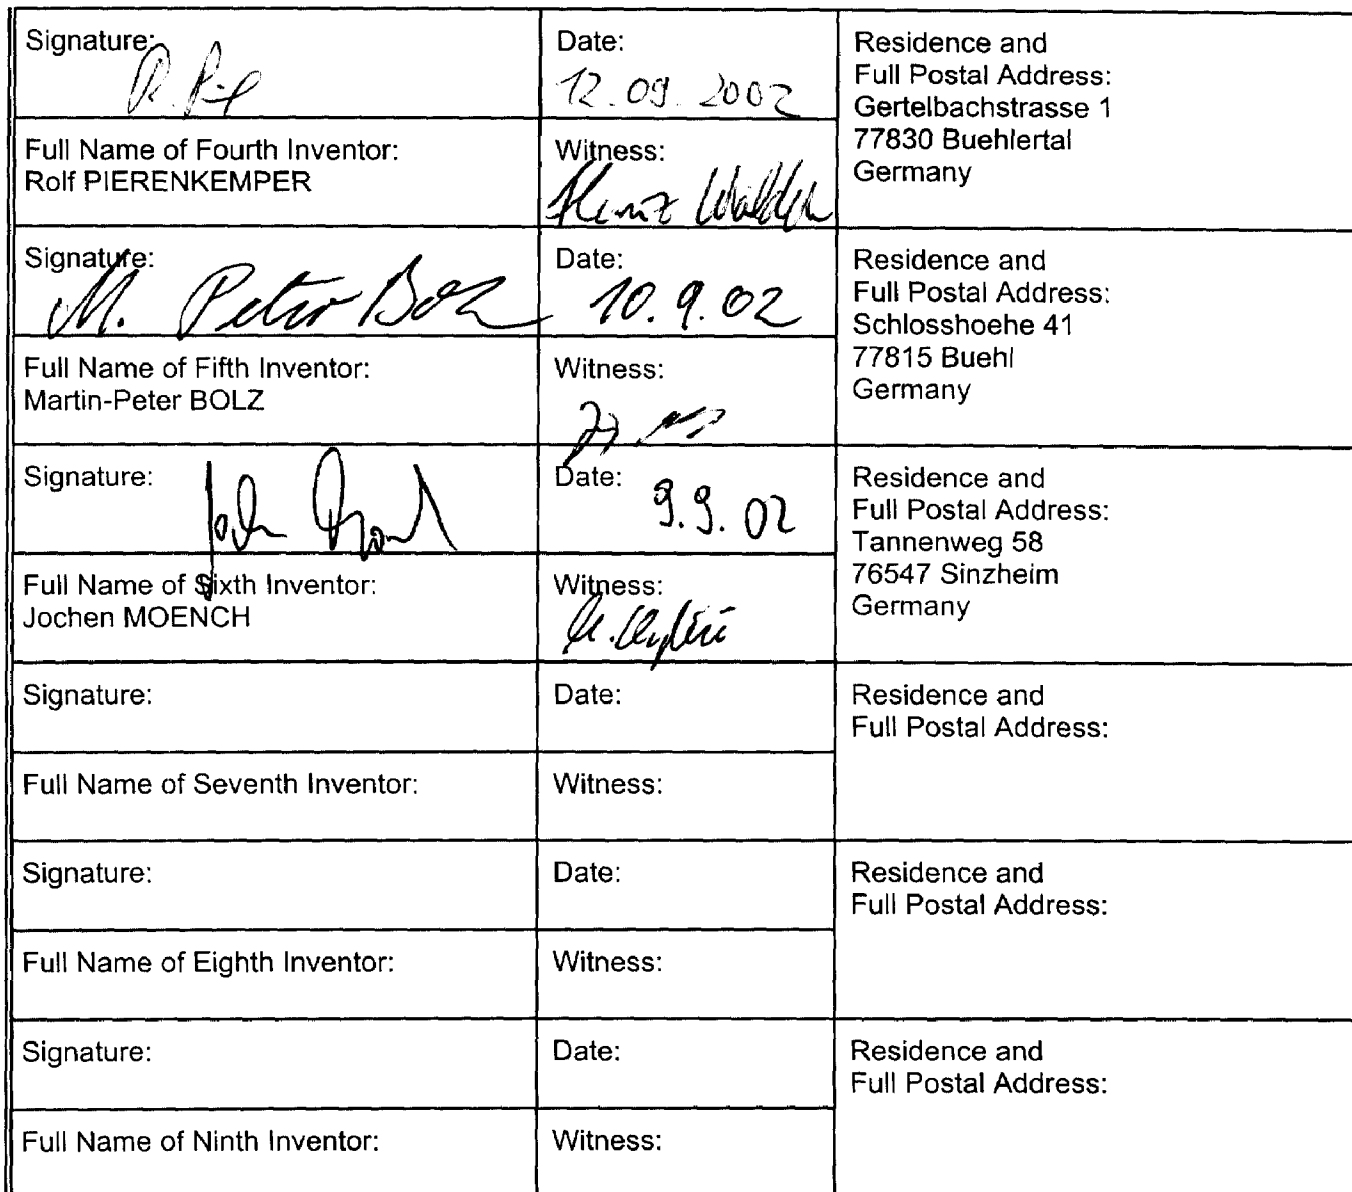 Signature:
Date:
12.09.2002
Residence and
Full Postal Address:
Gertelbachstrasse 1
77830 Buehlertal
Germany
Full Name of Fourth Inventor:
Rolf PIERENKEMPER
Witness:
Signature:
M. Peter Bolz
Date:
10.9.02
Residence and
Full Postal Address:
Schlosshoehe 41
77815 Buehl
Germany
Full Name of Fifth Inventor:
Martin-Peter BOLZ
Witness:
Signature:
Date:
9.9.02
Residence and
Full Postal Address:
Tannenweg 58
76547 Sinzheim
Germany
Full Name of Sixth Inventor:
Jochen MOENCH
Witness:
Signature:
Date:
Residence and
Full Postal Address:
Full Name of Seventh Inventor:
Witness:
Signature:
Date:
Residence and
Full Postal Address:
Full Name of Eighth Inventor:
Witness:
Signature:
Date:
Residence and
Full Postal Address:
Full Name of Ninth Inventor:
Witness: